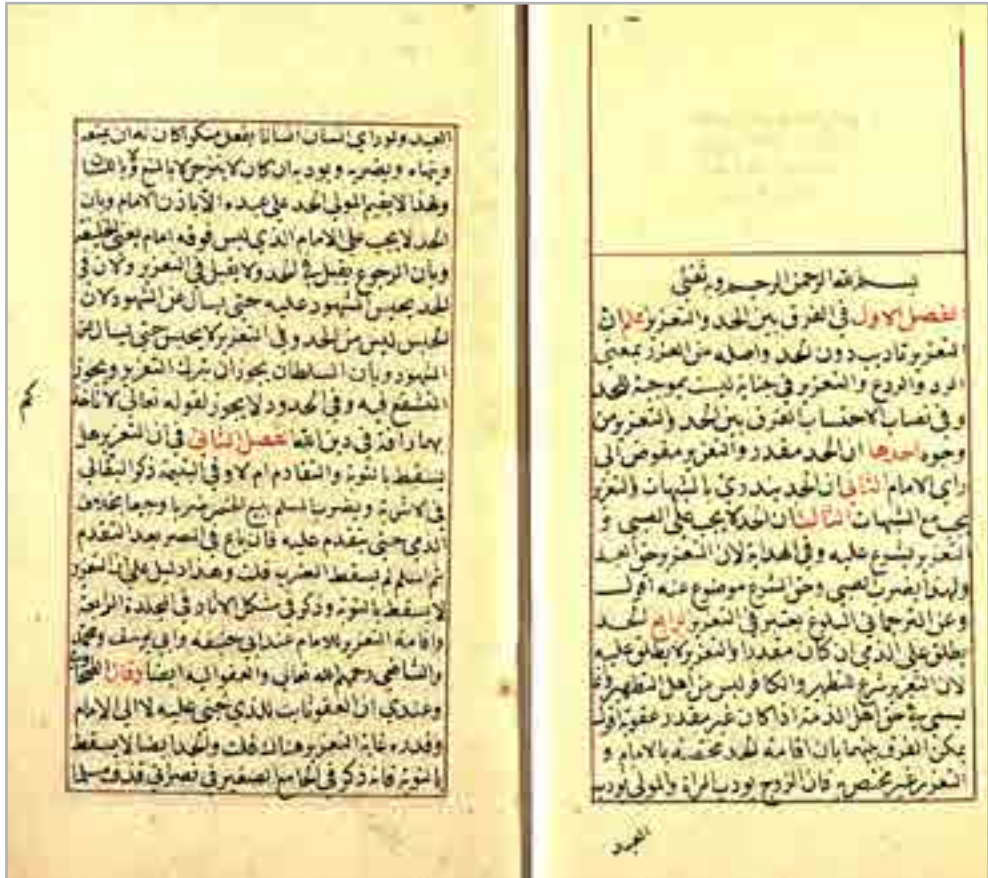 بسم الله الرحمن الرحيم وبه ثقتي
الفصل الاول في الفرق بين الحد والتعزير اعلم ان
التعزير تاديب دون الحد واصله من العزر بمعنى
الرد والردع والتعزير في جناية ليست بموجبة للحد
وفي نصاب الاحتساب الفرق بين الحد والتعزير من
وجوه احدها ان الحد مقدر والتعزير مفوض الى
راي الامام الثاني ان الحد يندرئ بالشبهات والتعزير
يجب مع الشبهات الثالث ان الحد لا يجب على الصبي و
التعزير يشرع عليه وفي الهداية لان التعزير حق العبد
ولهذا يضرب الصبي وحق الشرع موضوع عنه اقول
وعن الترجماني البلوغ يعتبر في التعزير الرابع الحد
يطلق على الذمي ان كان مقدرا والتعزير لا يطلق عليه
لان التعزير شرع للتطهير والكافر ليس من اهل التطهير وانما
يسمى في حق اهل الذمة اذا كان غير مقدر عقوبة اقول
يمكن الفرق بينهما بان اقامة الحد مختصة بالامام و
التعزير غير مختص به فان الزوج يودب المراة والمولى يودب
العبد
العبد ولو راى انسان انسانا يفعل منكرا كان له ان يمنعه
وينهاه ويضربه ويودبه ان كان لا ينزجر بالمنع باللسان
ولهذا لا يقيم المولى الحد على عبده الا باذن الامام وبان
الحد لا يجب على الامام الذي ليس فوقه امام يعني الخليفة
وبان الرجوع يقبل في الحد ولا يقبل في التعزير ولان في
الحد يحبس المشهود عليه حتى يسال عن الشهود لان
الحبس ليس من الحد وفي التعزير لا يحبس حتى يسال عن
الشهود وبان السلطان يجوز ان يترك التعزير ويجوز
التشفع فيه وفي الحدود لا يجوز لقوله تعالى لا تاخذكم
بهما رافة في دين الله الفصل الثاني في ان التعزير هل
يسقط بالتوبة والتقادم ام لا وفي اليتيمة ذكر البقالي
في الاشربة ويضرب المسلم ببيع الخمر ضربا وجيعا بخلاف
الذمي حتى يتقدم عليه فان باع في المصر بعد التقدم
ثم اسلم لم يسقط الضرب قلت وهذا دليل على ان التعزير
لا يسقط بالتوبة وذكر في مشكل الاثار في المجلدة الرابعة
واقامة التعزير للامام عند ابي حنيفة وابي يوسف ومحمد
والشافعي رحمهم الله تعالى والعفو اليه ايضا وقال الطحاوي
وعندي ان العقوبات للذي جنى عليه لا الى الامام
وقدره غاية التعزير هناك قلت والحد ايضا لا يسقط
بالتوبة فانه ذكر في الجامع الصغير في نصراني قذف مسلما